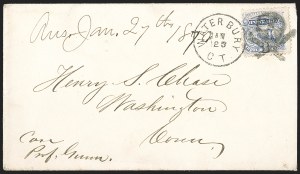 Ans. Jan. 27th, 187
WATERBURY
JAN
CT
Henry S. Chase
Washington
Conn.
Care
Prof. Gunn.